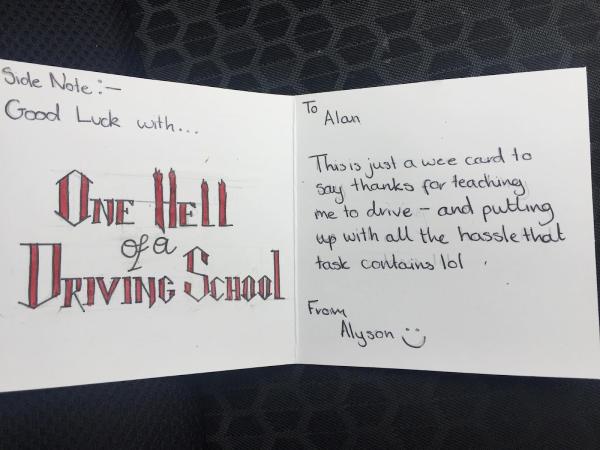 Side Note:-
Good Luck with...
ONE HELL
of a
DRIVING SCHOOL
To
Alan
This is just a wee card to
say thanks for teaching
me to drive - and putting
up with all the hassle that
task contains lol
From
Alyson :)